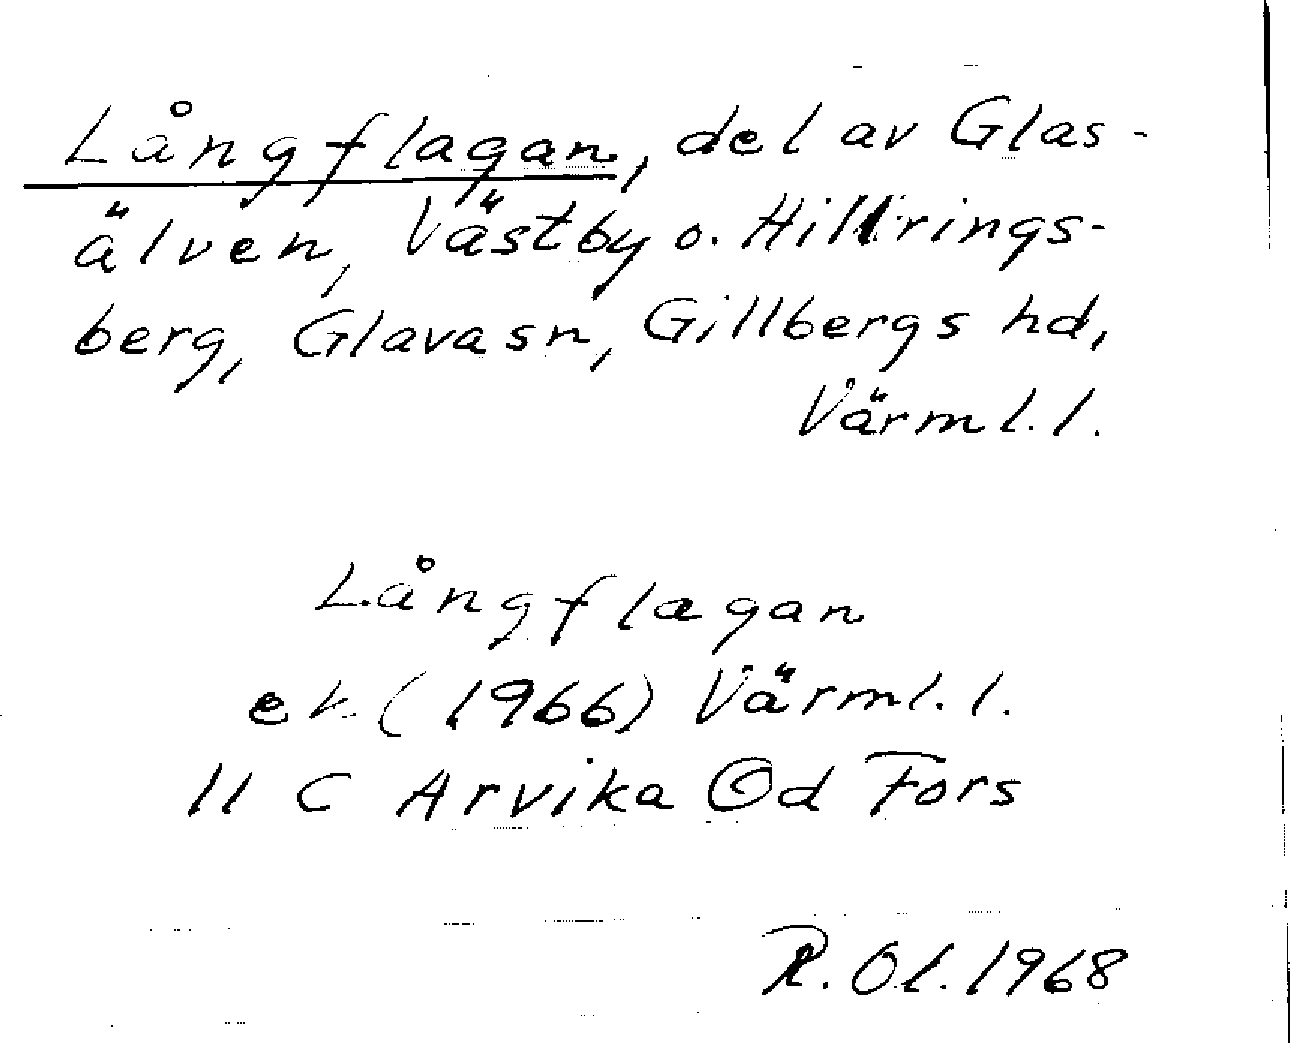 Långflagan, del av Glas-
älven, Västby o. Hillrings-
berg, Glava sn, Gillbergs hd,
Värml. l.
Långflagan
ek. (1966) Värml. l.
11 C Arvika Öd Fors
R. Ol. 1968